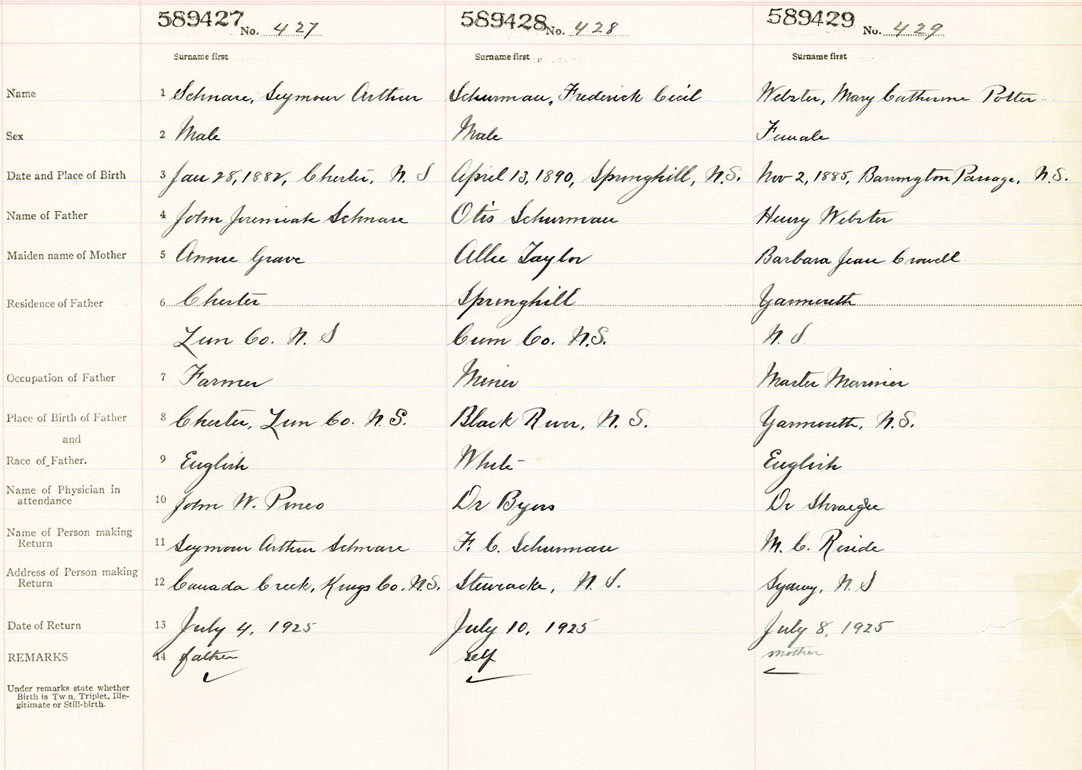 589427 No. 427 589428 No. 428 589429 No. 429
Surname first Surname first Surname first
Name 1 Schnare, Seymour Arthur Schurman, Frederick Cecil Webster, Mary Catherine Potter
Sex 2 Male Male Female
Date and Place of Birth 3 Jan 28, 1882, Chester, N. S April 13, 1890, Springhill, N.S. Nov 2, 1885, Barrington Passage, N.S.
Name of Father 4 John Jeremiah Schnare Otis Schurman Henry Webster
Maiden name of Mother 5 Annie Grave Allie Taylor Barbara Jean Crowell
Residence of Father 6 Chester Springhill Yarmouth
Lun Co. N. S Cum Co. N.S. N. S
Occupation of Father 7 Farmer Miner Master Mariner
Place of Birth of Father 8 Chester, Lun Co. N.S. Black River, N. S. Yarmouth, N.S.
and
Race of Father. 9 English White English
Name of Physician in
attendance 10 John W. Pineo Dr Byers Dr
Name of Person making
Return 11 Seymour Arthur Schnare F. C. Schurman M. C. Reside
Address of Person making
Return 12 Canada Creek, Kings Co. N.S. Stewiacke, N. S. Sydney, N. S
Date of Return 13 July 4, 1925 July 10, 1925 July 8, 1925
REMARKS 14 father self mother
Under remarks state whether
Birth is Twin, Triplet, Ille-
gitimate or Still-birth.